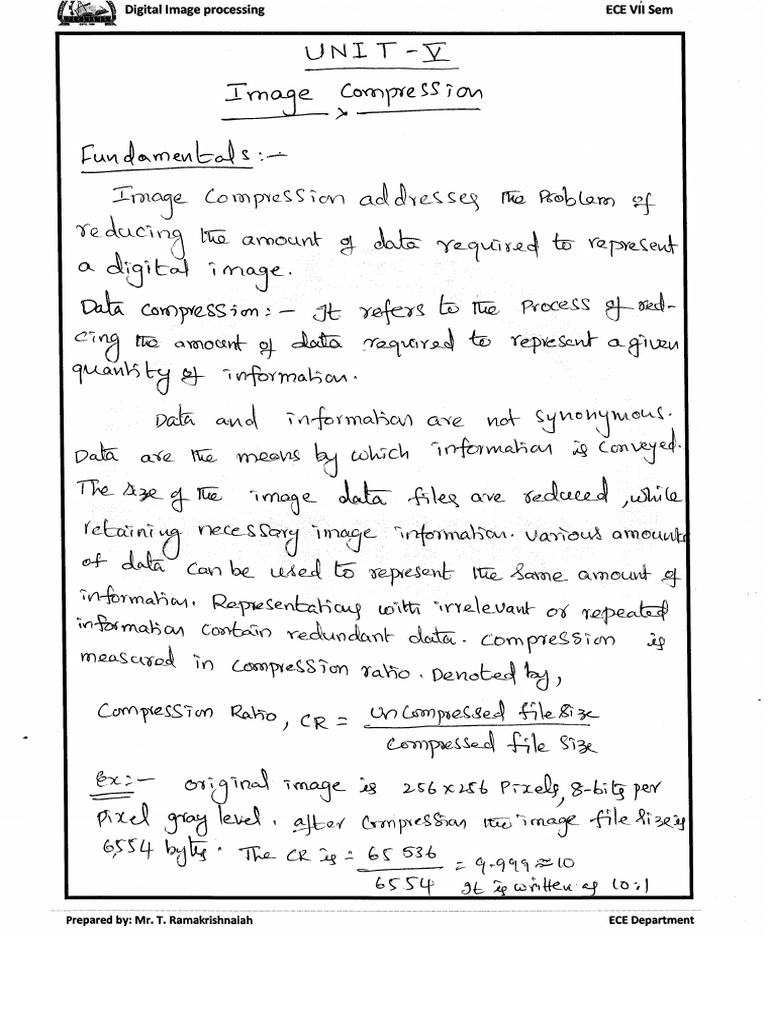 Digital Image processing ECE VII Sem
UNIT-V
Image Compression
Fundamentals:-
Image Compression addresses the Problem of
reducing the amount of data required to represent
a digital image.
Data compression:- It refers to the Process of red-
cing the amount of data required to represent a given
quantity of information.
Data and information are not synonymous.
Data are the means by which information is conveyed.
The size of the image data files are reduced, while
retaining necessary image information. Various amounts
of data can be used to represent the same amount of
information. Representations with irrelevant or repeated
information contain redundant data. Compression is
measured in compression ratio. Denoted by,
Compression Ratio, CR = Uncompressed file size
Compressed file size
Ex:- Original image is 256x256 Pixels, 8-bits per
Pixel gray level. after Compression the image file size is
6,554 bytes. The CR is = 65 536 = 9.999 ≈ 10
6554 It is written as 10:1
Prepared by: Mr. T. Ramakrishnaiah ECE Department